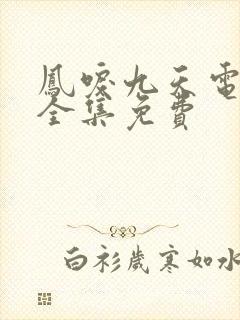 鳳唳九天電
全集免費
白衫歲寒如水